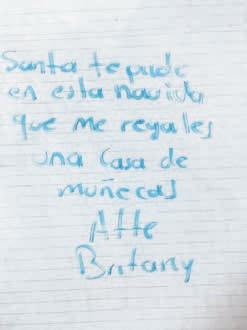 Santa te pido
en esta navida
que me regales
una casa de
muñecas
Atte
Britany